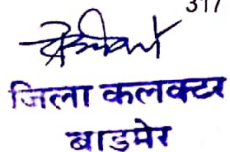 317
जिला कलक्टर
बाडमेर